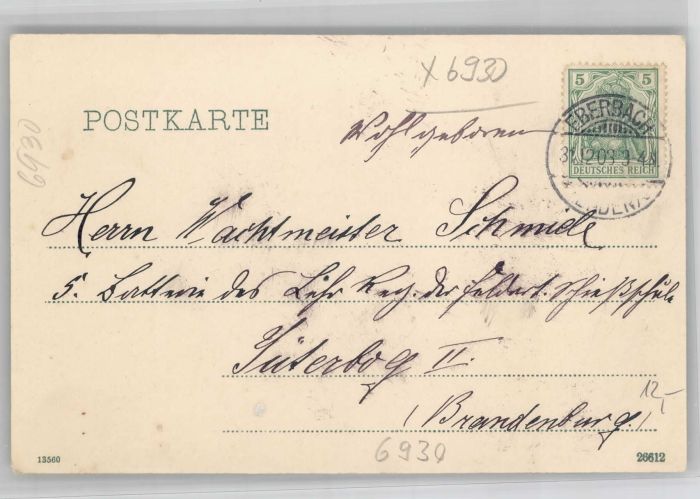 X 6930
5 5
DEUTSCHES REICH
EBERBACH
31.12.03
POSTKARTE
6930
Wohlgeboren
Herrn Wachtmeister Schmiele
5. Batterie des Lehr Reg. der Feldart. Schießschule
Jüterbog II.
12,-
(Brandenburg)
6930
13560 26612